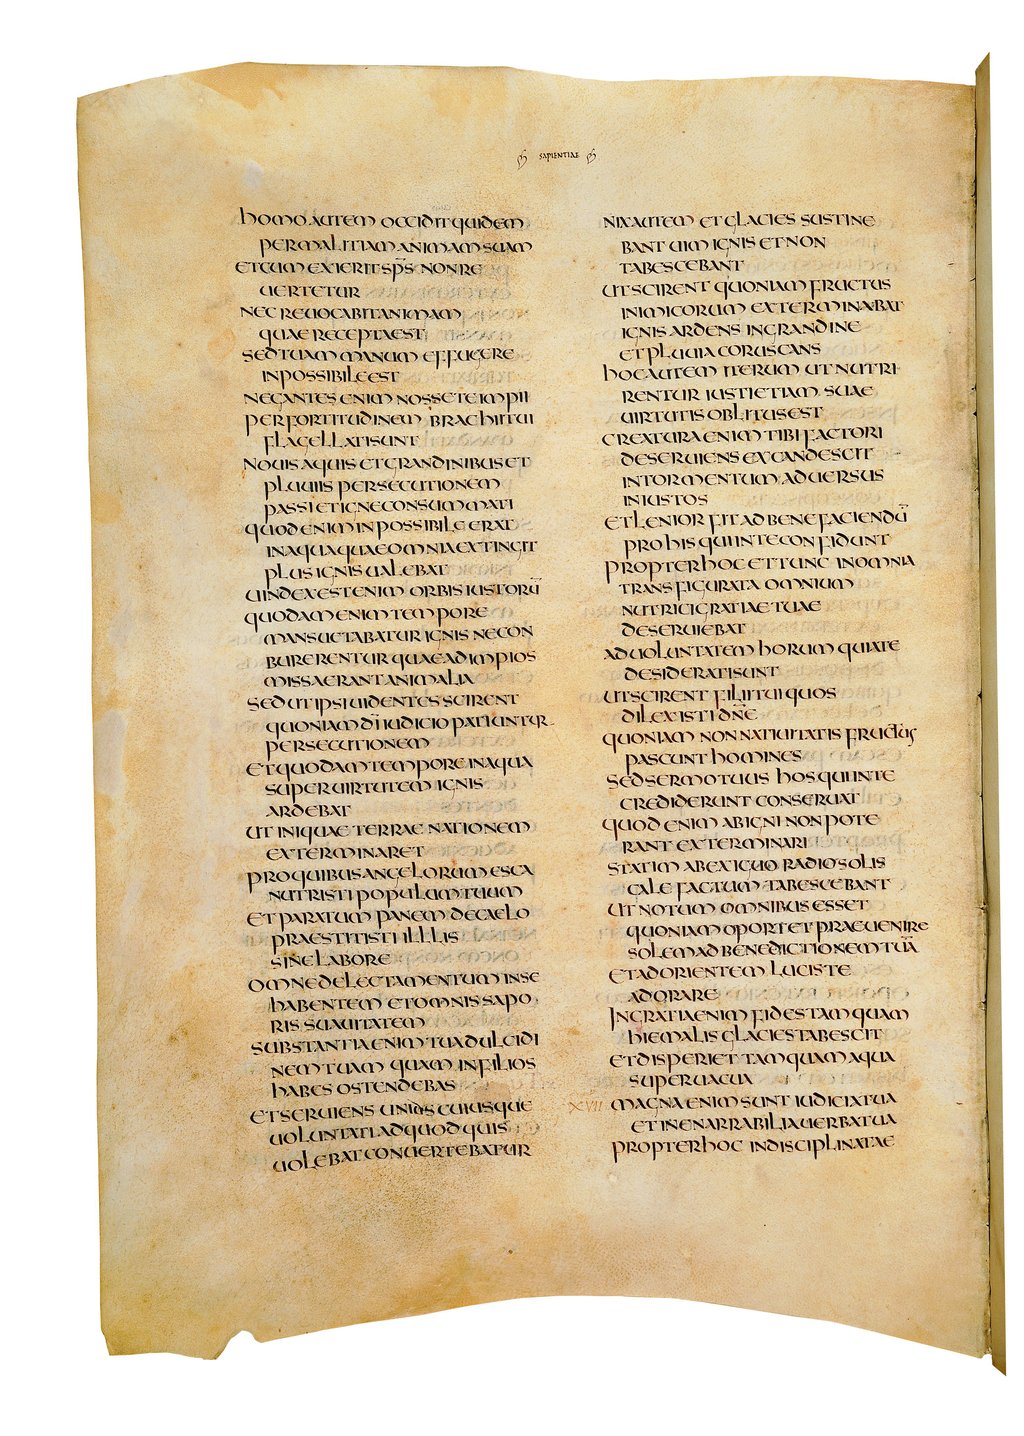 SAPIENTIAE
homo autem occidit quidem
per malitiam animam suam
et cum exierit sp̅s non re
uertetur
nec reuocabit animam
quae recepta est
sed tuam manum effugere
inpossibile est
negantes enim nosse te impii
per fortitudinem brachii tui
flagellati sunt
nouis aquis et grandinibus et
pluuiis persecutionem
passi et igne consummati
quod enim inpossibile erat
in aqua quae omnia extingit
plus ignis ualebat
uindex est enim orbis iustorū
quodam enim tempore
mansuetabatur ignis ne con
burerentur quae ad impios
missa erant animalia
sed ut ipsi uidentes scirent
quoniam d̅i iudicio patiuntur
persecutionem
et quodam tempore in aqua
super uirtutem ignis
ardebat
ut iniquae terrae nationem
exterminaret
pro quibus angelorum esca
nutristi populum tuum
et paratum panem de caelo
praestitisti illis
sine labore
omne delectamentum in se
habentem et omnis sapo
ris suauitatem
substantia enim tua dulcidi
nem tuam quam in filios
habes ostendebas
et seruiens unius cuiusque
uoluntati ad quod quis
uolebat conuertebatur
nix autem et glacies sustine
bant uim ignis et non
tabescebant
ut scirent quoniam fructus
inimicorum exterminabat
ignis ardens in grandine
et pluuia coruscans
hoc autem iterum ut nutri
rentur iusti etiam suae
uirtutis oblitus est
creatura enim tibi factori
deseruiens excandescit
in tormentum aduersus
iniustos
et lenior fit ad benefaciendū
pro his qui in te confidunt
propter hoc et tunc in omnia
transfigurata omnium
nutrici gratiae tuae
deseruiebat
ad uoluntatem horum qui a te
desiderati sunt
ut scirent filii tui quos
dilexisti dn̅e
quoniam non natiuitatis fructus
pascunt homines
sed sermo tuus hos qui in te
crediderunt conseruat
quod enim ab igni non pote
rant exterminari
statim ab exiguo radio solis
cale factum tabescebant
ut notum omnibus esset
quoniam oportet praeuenire
solem ad benedictionem tuā
et ad orientem lucis te
adorare
Ingrati enim fides tamquam
hiemalis glacies tabescit
et disperiet tamquam aqua
superuacua
XVII magna enim sunt iudicia tua
et inenarrabilia uerba tua
propter hoc indisciplinatae